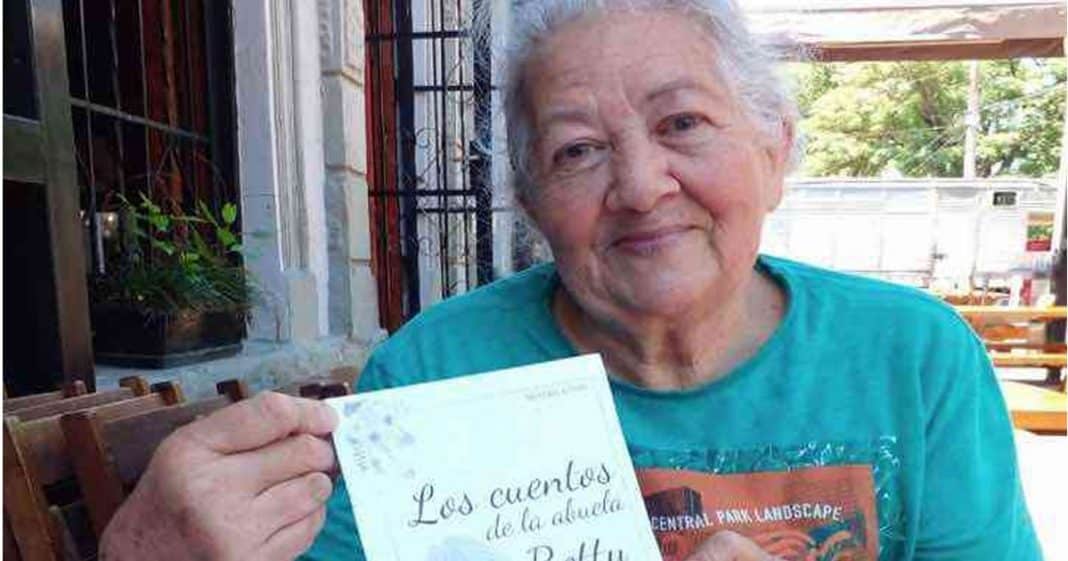 Los cuentos
de la abuela
Betty
CENTRAL PARK LANDSCAPE